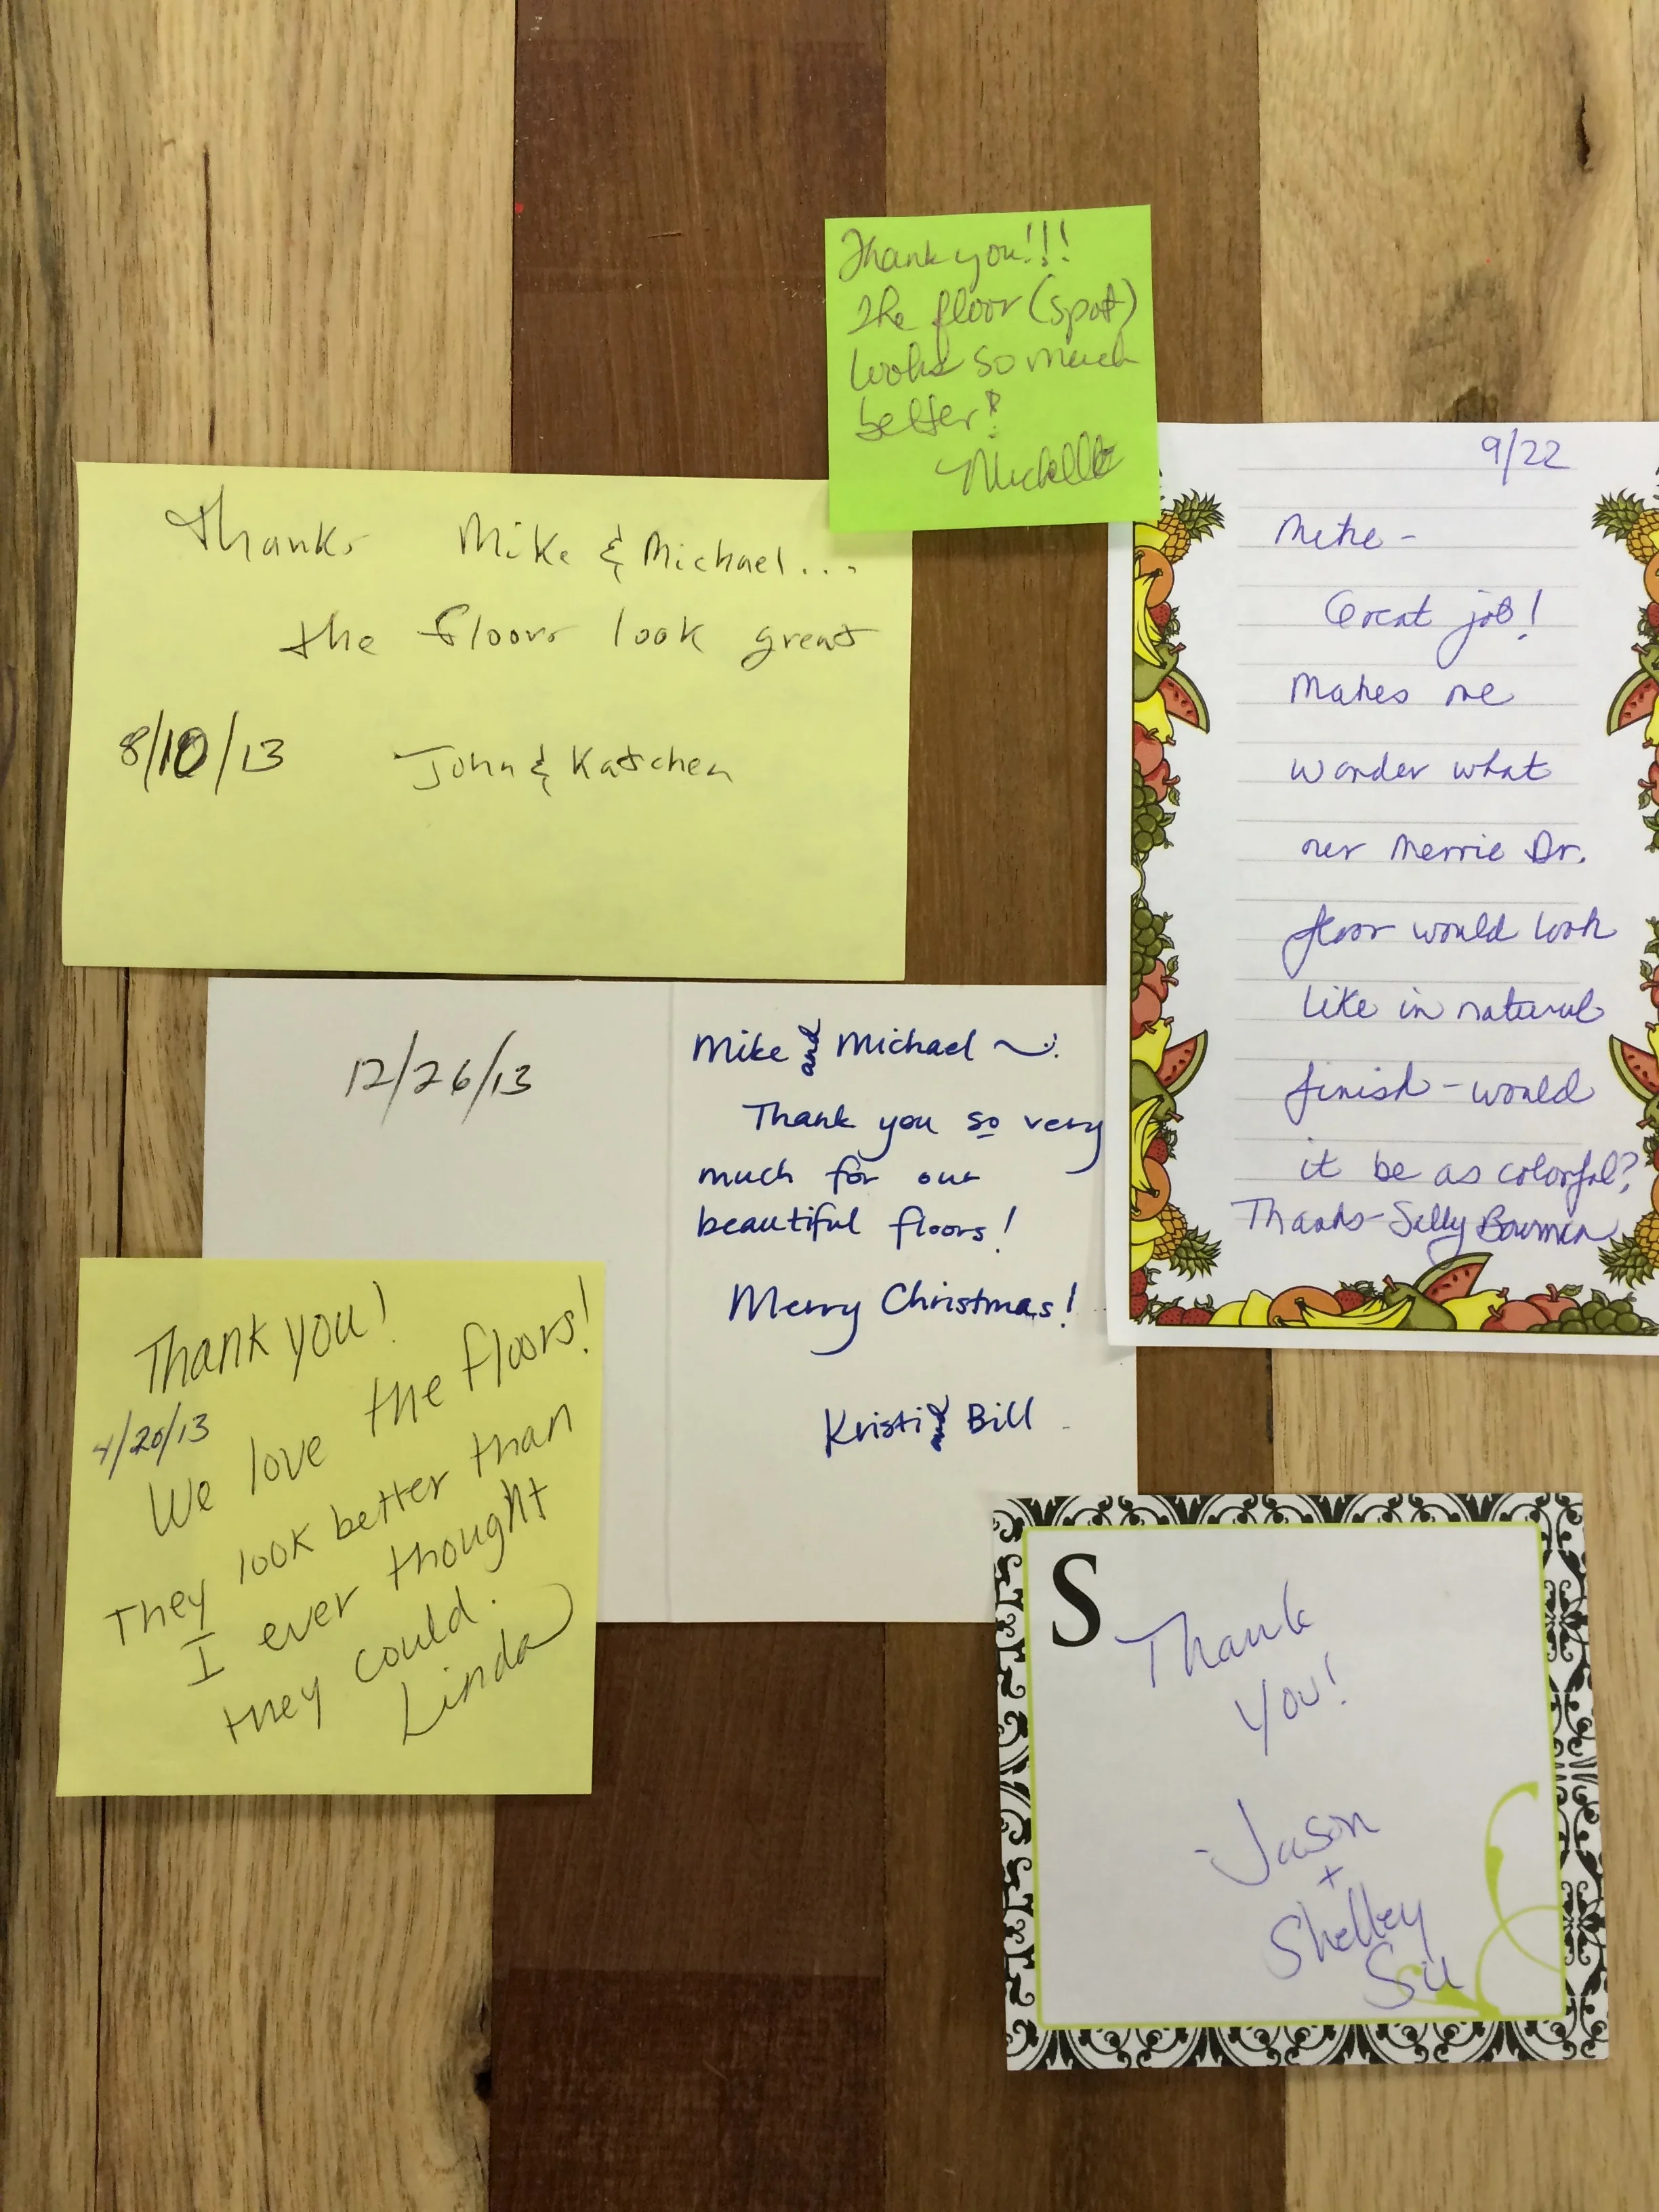 Thank you!!!
The floor (spot)
looks so much
better!
Michelle
Thanks Mike & Michael...
the floors look great
8/10/13 John & Katschen
9/22
Mike -
Great job!
Makes me
wonder what
our Merrie Dr.
floor would look
like in natural
finish - would
it be as colorful?
Thanks - Sally Bowman
12/26/13
Mike and Michael ~
Thank you so very
much for our
beautiful floors!
Merry Christmas!
Kristi and Bill
Thank you!
4/20/13
We love the floors!
They look better than
I ever thought
they could.
Linda
S
Thank
you!
-Jason
+
Shelley